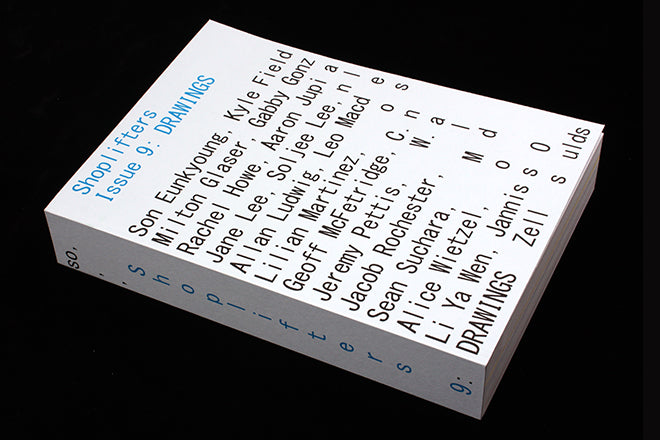 Shoplifters
Issue 9: DRAWINGS
Son Eunkyoung, Kyle Field
Milton Glaser, Gabby Gonz
Rachel Howe, Aaron Jupi a
Jane Lee, Soljee Lee, n l e
Allan Ludwig, Leo Macd o s
Lilian Martinez, n
Geoff McFetridge, C. a
Jeremy Pettis, W. l
Jacob Rochester, M d
Sean Suchara, o
Alice Wietzel, O
Li Ya Wen, Jannis s s ulds
DRAWINGS Zell
so, , , Shoplifters 9: